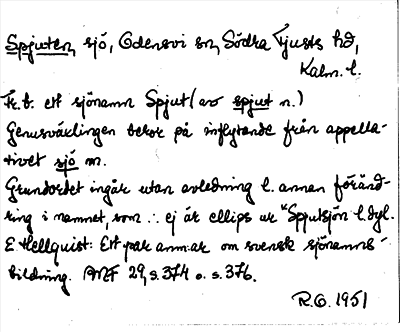 Spjuten, sjö, Odensvi sn, Södra Tjusts hd,
Kalm. l.
Tr. b. ett sjönamn Spjut (av spjut n.)
Genusväxlingen beror på inflytande från appella-
tivet sjö m.
Grundordet ingår utan avledning l. annan föränd-
ring i namnet, som ∴ ej är ellips ur *Spjutsjön l. dyl.
E. Hellquist: Ett par anm:ar om svensk sjönamns-
bildning. ANF 29, s. 374 o. s. 376.
R.G. 1951